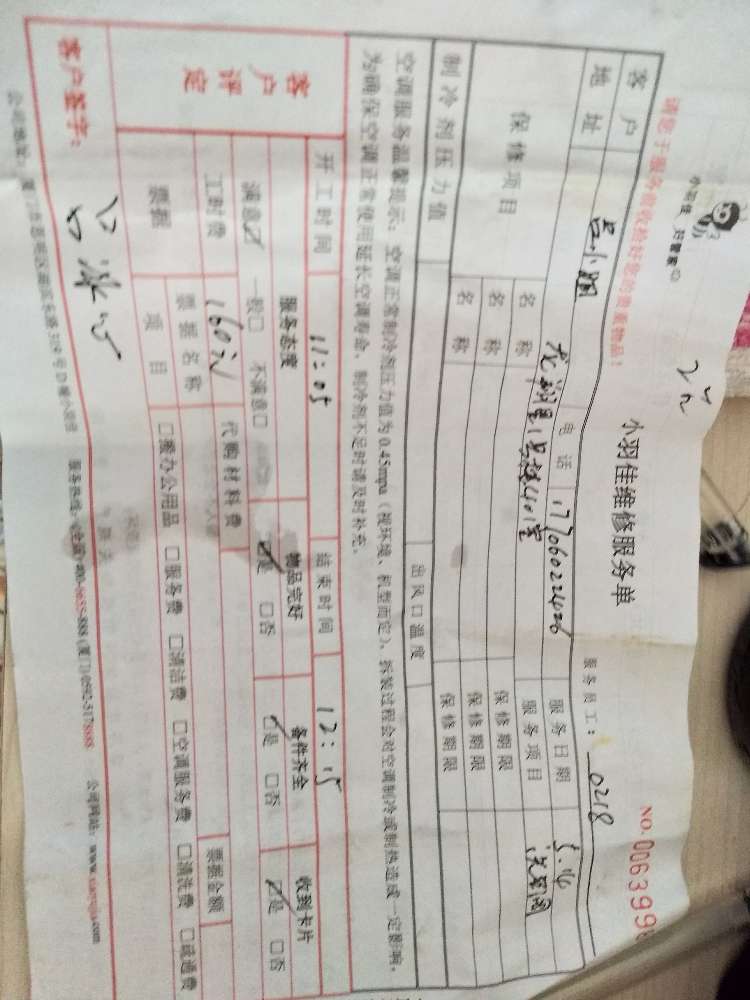 小羽佳 好管家
请您于服务前收检好您的贵重物品!
小羽佳维修服务单
NO. 006399
服务员工: 0218
客户 吴小姐 电话 17706022426 服务日期 5.16
地址 龙翔里1号楼401室 服务项目 洗空调
保修项目 名称 保修期限
名称 保修期限
名称 保修期限
制冷剂压力值 出风口温度
空调服务温馨提示: 空调正常制冷剂压力值为0.45mpa(视环境、机型而定)、拆装过程会对空调制冷或制热造成一定影响,
为确保空调正常使用延长空调寿命、制冷剂不足时请及时补充。
开工时间 11:05 结束时间 12:15
客户评定 服务态度 物品完好 备件齐全 收到卡片
满意☑ 一般□ 不满意□ ☑是 □否 ☑是 □否 ☑是 □否
工时费 160元 代购材料费
票据 票据名称 票据金额
项目 □搬办公用品 □服务费 □清洁费 □空调服务费 □清洗费 □疏通费
客户签字:
服务热线: 400-6655-888 (厦门) 0592-5178888 公司网站: